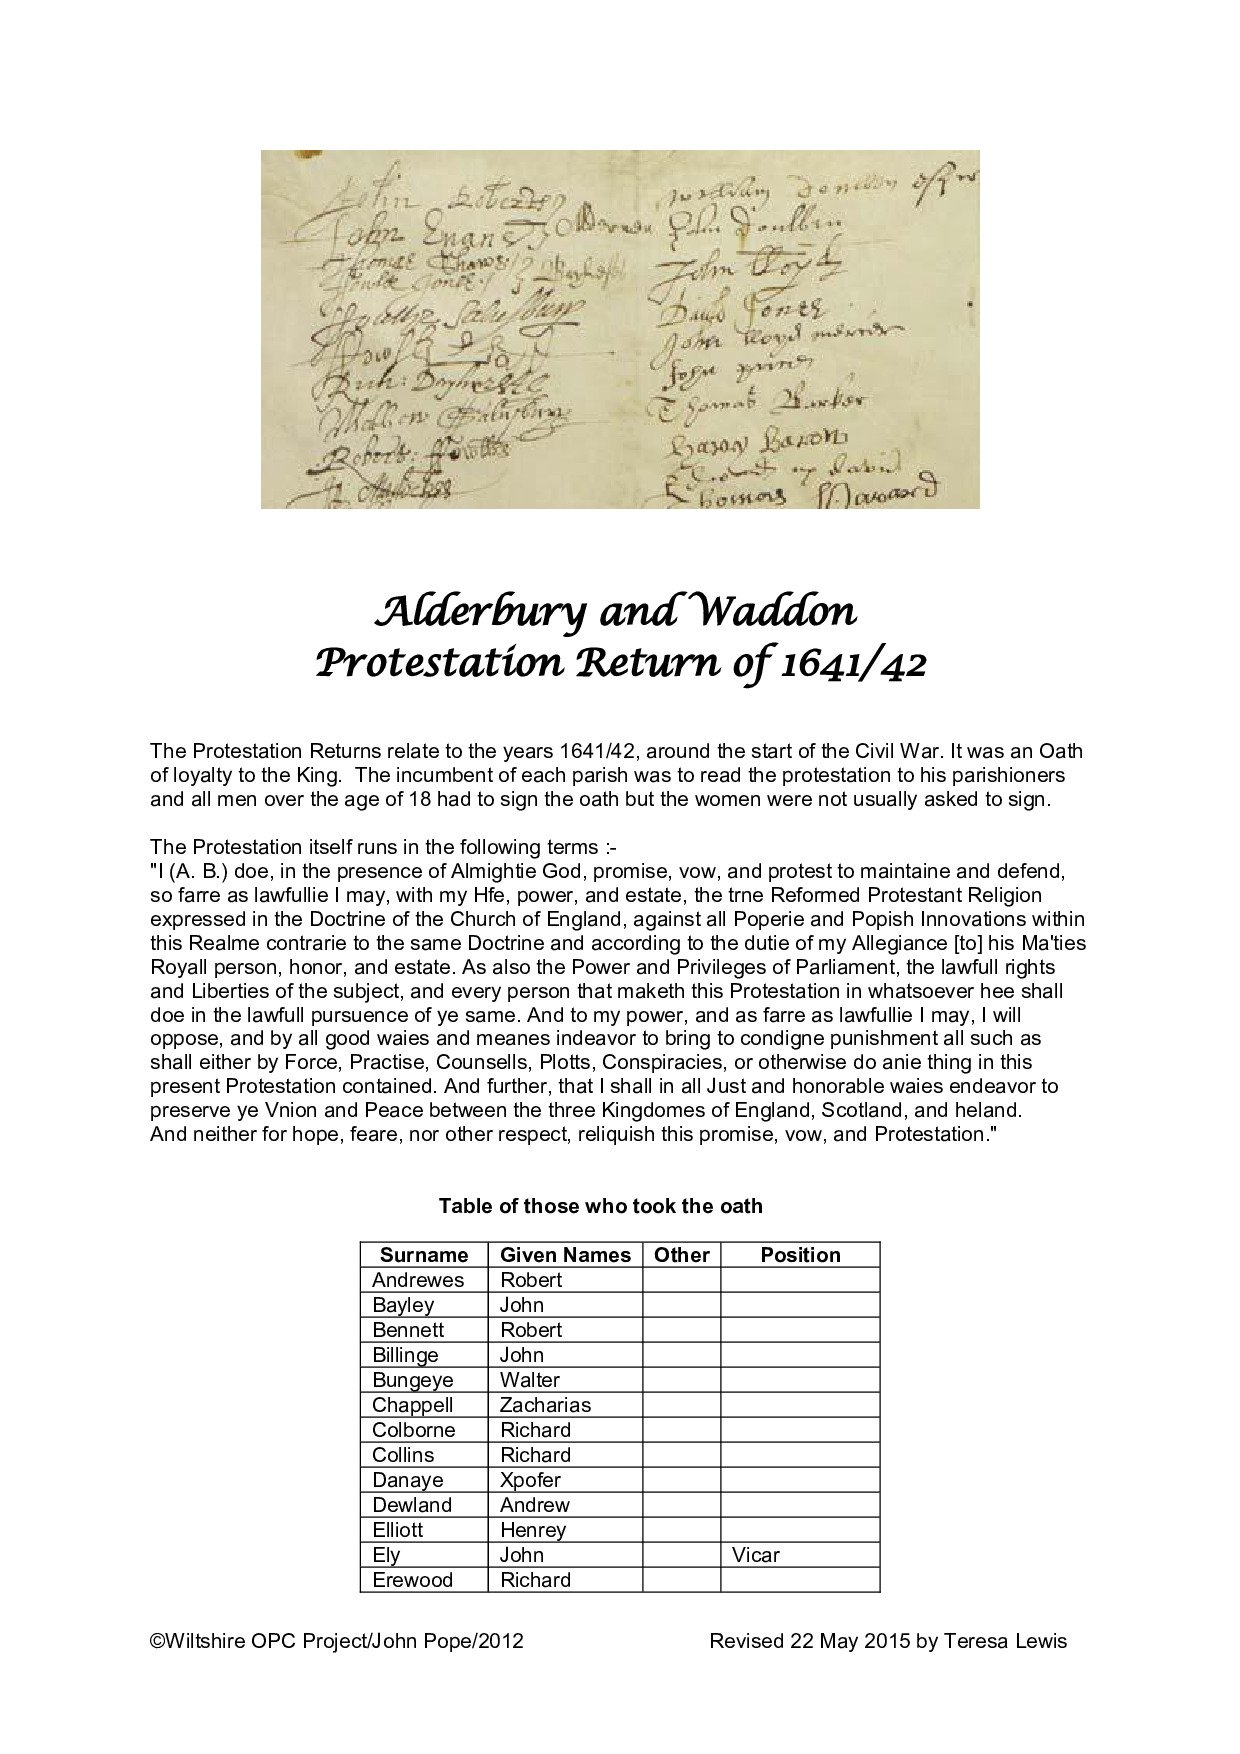 John Roberts
John Evans
John Lloyd
David Jones
John lloyd
John
Thomas Barker
Harry Baron
Thomas
Alderbury and Waddon
Protestation Return of 1641/42
The Protestation Returns relate to the years 1641/42, around the start of the Civil War. It was an Oath
of loyalty to the King.  The incumbent of each parish was to read the protestation to his parishioners
and all men over the age of 18 had to sign the oath but the women were not usually asked to sign.
The Protestation itself runs in the following terms :-
"I (A. B.) doe, in the presence of Almightie God, promise, vow, and protest to maintaine and defend,
so farre as lawfullie I may, with my Hfe, power, and estate, the trne Reformed Protestant Religion
expressed in the Doctrine of the Church of England, against all Poperie and Popish Innovations within
this Realme contrarie to the same Doctrine and according to the dutie of my Allegiance [to] his Ma'ties
Royall person, honor, and estate. As also the Power and Privileges of Parliament, the lawfull rights
and Liberties of the subject, and every person that maketh this Protestation in whatsoever hee shall
doe in the lawfull pursuence of ye same. And to my power, and as farre as lawfullie I may, I will
oppose, and by all good waies and meanes indeavor to bring to condigne punishment all such as
shall either by Force, Practise, Counsells, Plotts, Conspiracies, or otherwise do anie thing in this
present Protestation contained. And further, that I shall in all Just and honorable waies endeavor to
preserve ye Vnion and Peace between the three Kingdomes of England, Scotland, and heland.
And neither for hope, feare, nor other respect, reliquish this promise, vow, and Protestation."
Table of those who took the oath
Surname Given Names Other Position
Andrewes Robert
Bayley John
Bennett Robert
Billinge John
Bungeye Walter
Chappell Zacharias
Colborne Richard
Collins Richard
Danaye Xpofer
Dewland Andrew
Elliott Henrey
Ely John Vicar
Erewood Richard
©Wiltshire OPC Project/John Pope/2012 Revised 22 May 2015 by Teresa Lewis